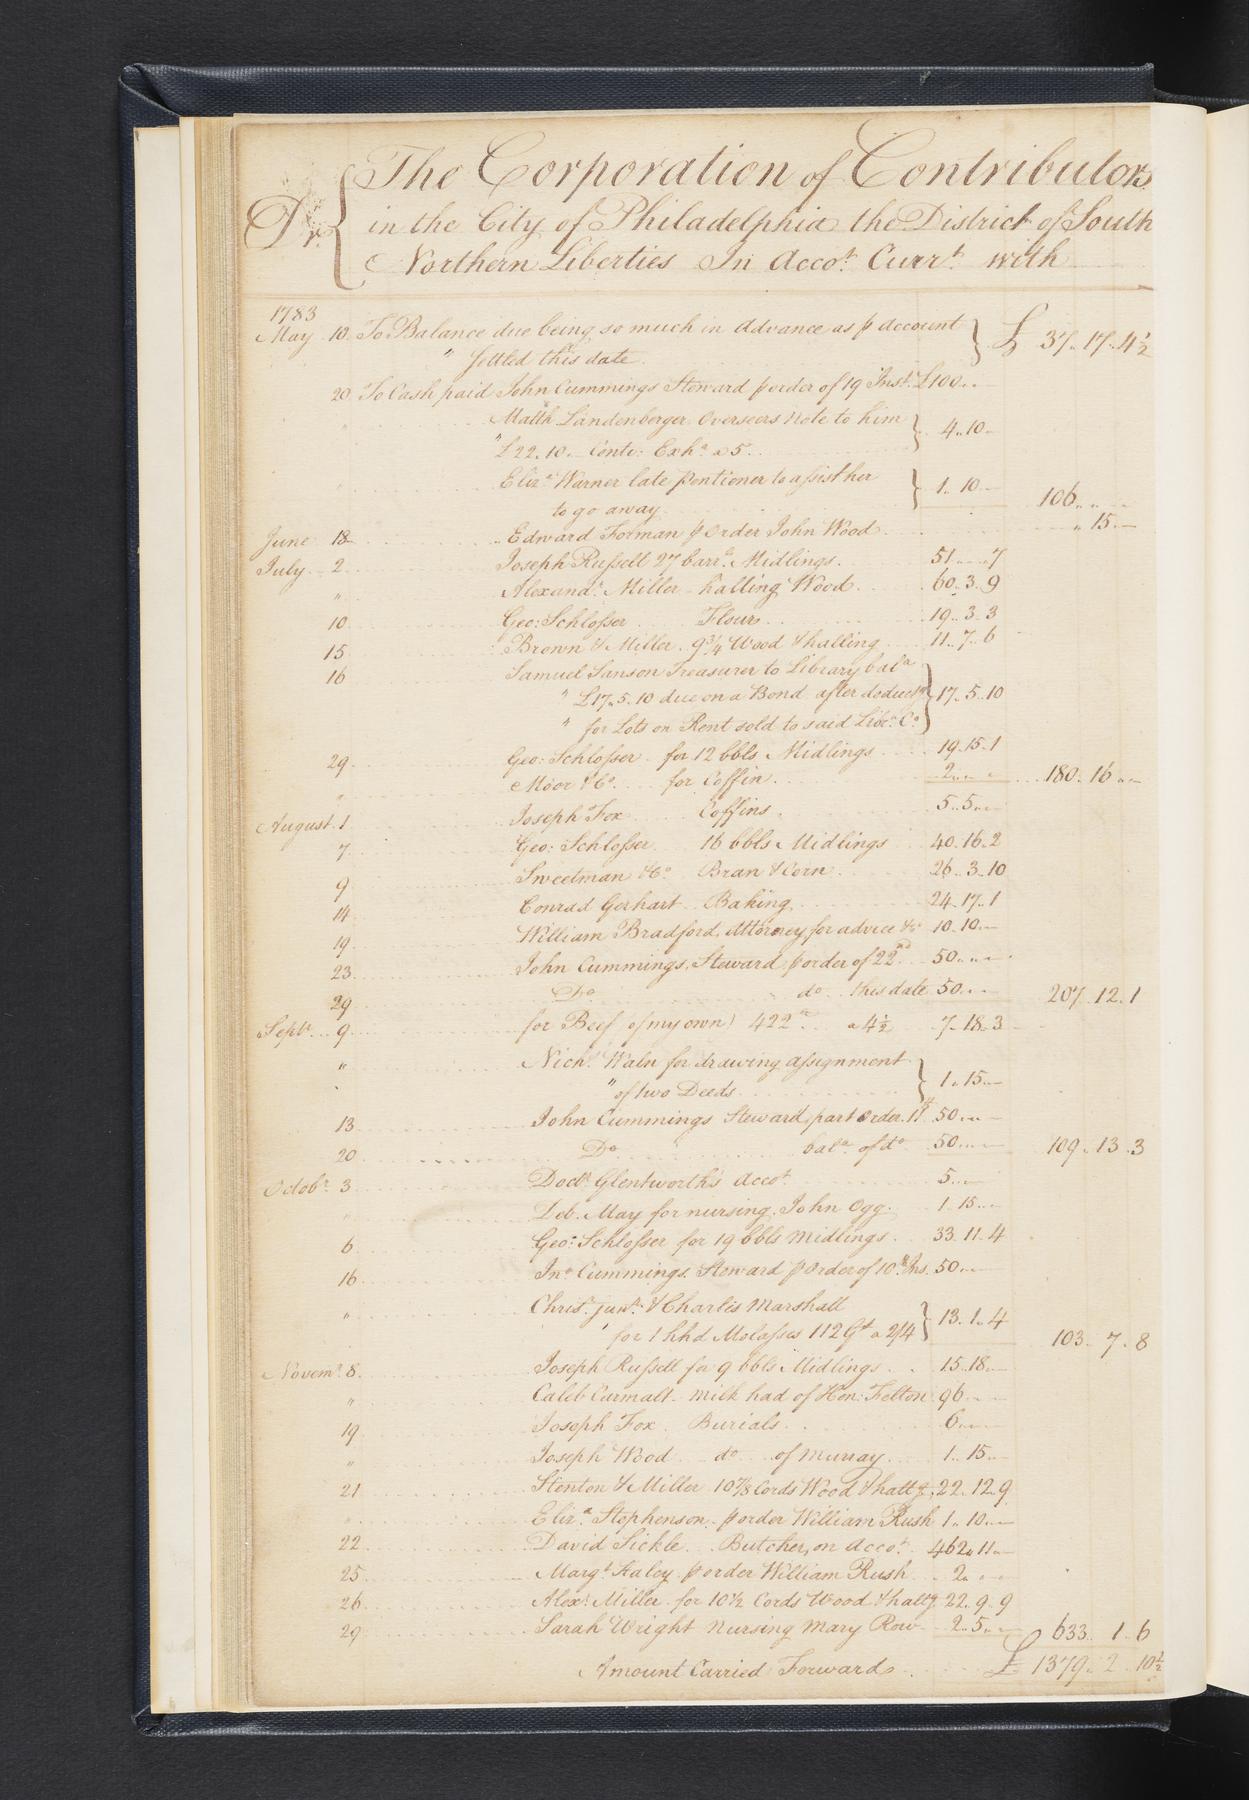 Dr. { The Corporation of Contributors
in the City of Philadelphia the District of South
Northern Liberties In Accot. Currt. with
1783
May 10 To Balance due being so much in Advance as p account } £ 37.. 17.. 4½
" settled this date
20 To Cash paid John Cummings Steward p order of 19 Inst. £100..
Matth. Landenberger Overseers Note to him } 4..10-
" £22.10.. Contl. Exha. a 5
Eliza. Warner late pentioner to assist her } 1..10- 106.. ..
to go away
June 18 Edward Forman p Order John Wood " 15-
July 2 Joseph Russell 27 barrls. Midlings 51.. .. 7
" Alexandr. Miller halling Wood 60.. 3.. 9
10 Geo: Schlosser Flour 19.. 3.. 3
15 Brown & Miller 9¾ Wood & halling 11.. 7.. 6
16 Samuel Sanson Treasurer to Library bala.
" £17.5.10 due on a Bond after deductg. } 17.. 5.. 10
" for Lots on Rent sold to said Libr. Co.
29 Geo: Schlosser for 12 bbls Midlings 19.15.1
" Moor & Co. for Coffin 2.. .. .. 180.. 16.. ..
August 1 Joseph Fox Coffins 5..5..-
7 Geo: Schlosser 16 bbls Midlings 40.16.2
9 Sweetman & Co. Bran & Corn 26..3..10
14 Conrad Gerhart Baking 24.17..1
19 William Bradford, Attorney for advice &c 10.10-
23 John Cummings, Steward p order of 22nd. 50.. .. -
29 Do do this date 50.. .. 207.. 12.. 1
Septr. 9 for Beef of my own) 422 a 4½ 7..18..3
" Nichs. Waln for drawing assignment } 1..15-
" of two Deeds
13 John Cummings Steward, part Order 11th 50..-
20 Do bala. of do 50..- 109.. 13.. 3
Octobr. 3 Doctr. Glentworth's Accot. 5..-
" Deb. May for nursing John Ogg 1..15-
6 Geo: Schlosser for 19 bbls Midlings 33.11.4
16 Jno. Cummings, Steward p Order of 10th Ins. 50..-
" Chrisr. junr. & Charles Marshall } 13..1..4
" for 1 hhd Molasses 112 Gs. a 2/4 103.. 7.. 8
Novemr. 8 Joseph Russell for 9 bbls Midlings 15.18-
" Caleb Carmalt milk had of Hon: Felton 96..-
19 Joseph Fox Burials 6..-
" Joseph Wood do of Murray 1..15-
21 Stenton & Miller 10⅞ Cords Wood & hallg. 22..12.9
" Eliza. Stephenson p order William Rush 1..10-
22 David Sickle Butcher, on Accot. 462..11-
25 Margt. Haley p order William Rush 2.. .. ..
26 Alexr. Miller for 10½ Cords Wood & hallg. 22..9..9
29 Sarah Wright Nursing Mary Row 2..5.. 633.. 1.. 6
Amount Carried Forward £ 1379.. 2.. 10½